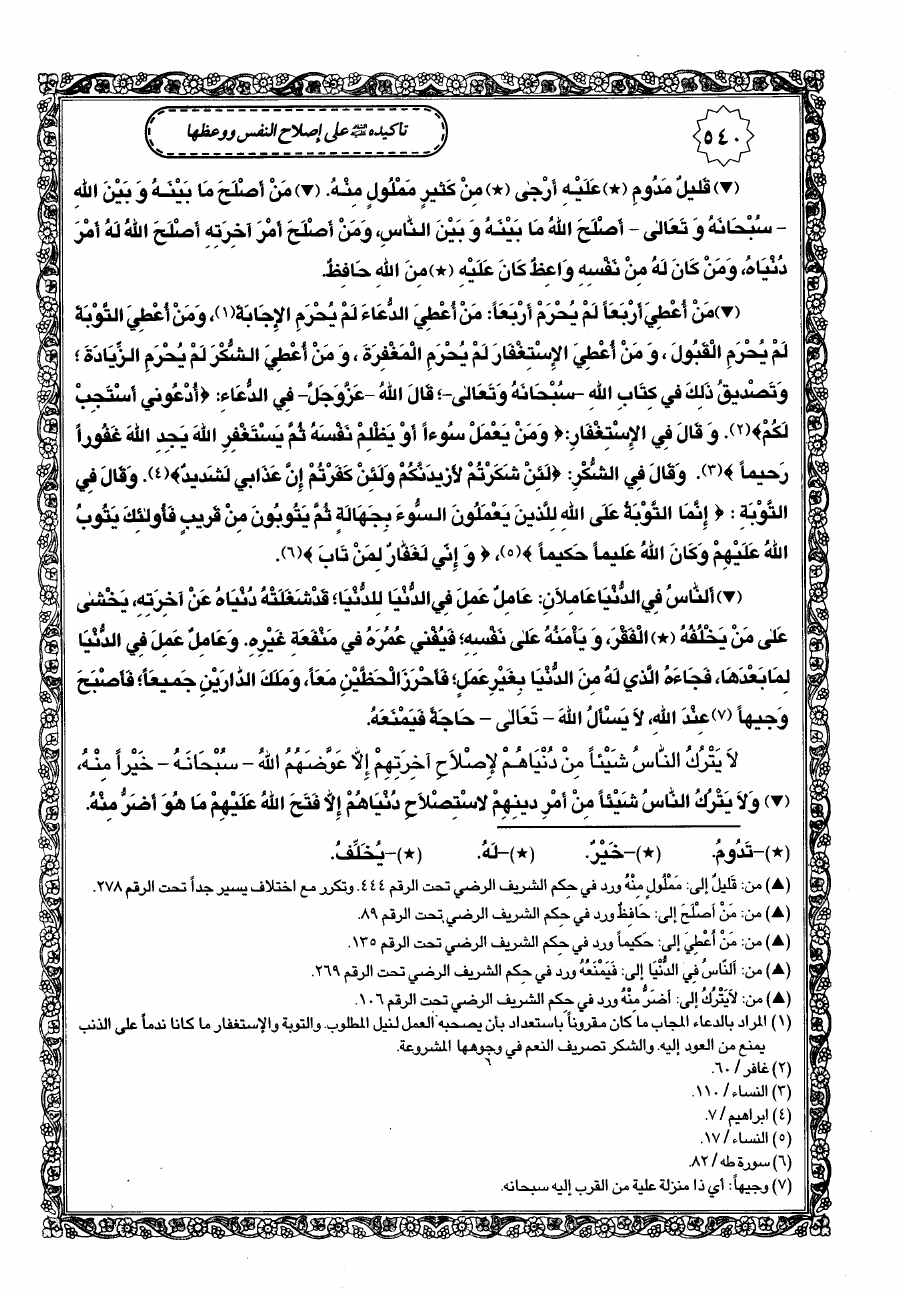 ٥٤٠
تأكيده على إصلاح النفس ووعظها
(▼) قَلِيلٌ مَدُومٍ (★) عَلَيْهِ أَرْجٰى (★) مِنْ كَثِيرٍ مَمْلُولٍ مِنْهُ. (▼) مَنْ أَصْلَحَ مَا بَيْنَهُ وَ بَيْنَ اللهِ
- سُبْحَانَهُ وَ تَعَالىٰ - أَصْلَحَ اللهُ مَا بَيْنَهُ وَ بَيْنَ النَّاسِ، وَمَنْ أَصْلَحَ أَمْرَ آخِرَتِهِ أَصْلَحَ اللهُ لَهُ أَمْرَ
دُنْيَاهُ، وَمَنْ كَانَ لَهُ مِنْ نَفْسِهِ وَاعِظٌ كَانَ عَلَيْهِ (★) مِنَ اللهِ حَافِظٌ.
(▼) مَنْ أُعْطِيَ أَرْبَعاً لَمْ يُحْرَمْ أَرْبَعاً: مَنْ أُعْطِيَ الدُّعَاءَ لَمْ يُحْرَمِ الإِجَابَةَ(١)، وَمَنْ أُعْطِيَ التَّوْبَةَ
لَمْ يُحْرَمِ الْقَبُولَ، وَ مَنْ أُعْطِيَ الإِسْتِغْفَارَ لَمْ يُحْرَمِ الْمَغْفِرَةَ، وَ مَنْ أُعْطِيَ الشُّكْرَ لَمْ يُحْرَمِ الزِّيَادَةَ ؛
وَتَصْدِيقُ ذَلِكَ في كِتَابِ اللهِ -سُبْحَانَهُ وَتَعَالىٰ-؛ قَالَ اللهُ -عَزَّوَجَلَّ- في الدُّعَاءِ: ﴿أُدْعُوني أَسْتَجِبْ
لَكُمْ﴾(٢). وَ قَالَ فِي الإِسْتِغْفَارِ:﴿ وَمَنْ يَعْمَلْ سُوءاً أَوْ يَظْلِمْ نَفْسَهُ ثُمَّ يَسْتَغْفِرِ اللهَ يَجِدِ اللهَ غَفُوراً
رَحِيماً ﴾(٣). وَقَالَ فِي الشُّكْرِ: ﴿لَئِنْ شَكَرْتُمْ لأَزِيدَنَّكُمْ وَلَئِنْ كَفَرْتُمْ إِنَّ عَذَابي لَشَدِيدٌ﴾(٤). وَقَالَ في
التَّوْبَةِ : ﴿ إِنَّمَا التَّوْبَةُ عَلَى اللهِ لِلَّذِينَ يَعْمَلُونَ السُّوءَ بِجَهَالَةٍ ثُمَّ يَتُوبُونَ مِنْ قَرِيبٍ فَأُولٰئِكَ يَتُوبُ
اللهُ عَلَيْهِمْ وَكَانَ اللهُ عَلِيماً حَكِيماً ﴾(٥)، ﴿ وَ إِنّي لَغَفَّارٌ لِمَنْ تَابَ ﴾(٦).
(▼) أَلنَّاسُ فِي الدُّنْيَا عَامِلاَنِ: عَامِلٌ عَمِلَ فِي الدُّنْيَا لِلدُّنْيَا؛ قَدْ شَغَلَتْهُ دُنْيَاهُ عَنْ آخِرَتِهِ، يَخْشىٰ
عَلى مَنْ يَخْلُفُهُ (★) الْفَقْرَ، وَ يَأْمَنُهُ عَلىٰ نَفْسِهِ؛ فَيُفْني عُمُرَهُ في مَنْفَعَةِ غَيْرِهِ. وَعَامِلٌ عَمِلَ فِي الدُّنْيَا
لِمَا بَعْدَهَا، فَجَاءَهُ الَّذي لَهُ مِنَ الدُّنْيَا بِغَيْرِ عَمَلٍ؛ فَأَحْرَزَ الْحَظَّيْنِ مَعاً، وَمَلَكَ الدَّارَيْنِ جَميعاً؛ فَأَصْبَحَ
وَجيهاً (٧) عِنْدَ اللهِ، لاَ يَسْأَلُ اللهَ - تَعَالىٰ - حَاجَةً فَيَمْنَعَهُ.
لاَ يَتْرُكُ النَّاسُ شَيْئاً مِنْ دُنْيَاهُمْ لإِصْلاَحِ آخِرَتِهِمْ إِلاَّ عَوَّضَهُمُ اللهُ - سُبْحَانَهُ - خَيْراً مِنْهُ،
(▼) وَلاَ يَتْرُكُ النَّاسُ شَيْئاً مِنْ أَمْرِ دِينِهِمْ لاسْتِصْلاَحِ دُنْيَاهُمْ إِلاَّ فَتَحَ اللهُ عَلَيْهِمْ مَا هُوَ أَضَرُّ مِنْهُ.
(★)-تَدُومُ. (★)-خَيْرٌ. (★)-لَهُ. (★)-يُخَلِّفُ.
(▲) من: قَلِيلٌ إلى: مَمْلُولٍ مِنْهُ ورد في حكم الشريف الرضي تحت الرقم ٤٤٤. وتكرر مع اختلاف يسير جداً تحت الرقم ٢٧٨.
(▲) من: مَنْ أَصْلَحَ إلى: حَافِظٌ ورد في حكم الشريف الرضي تحت الرقم ٨٩.
(▲) من: مَنْ أُعْطِيَ إلى: حَكيماً ورد في حكم الشريف الرضي تحت الرقم ١٣٥.
(▲) من: أَلنَّاسُ فِي الدُّنْيَا إلى: فَيَمْنَعَهُ ورد في حكم الشريف الرضي تحت الرقم ٢٦٩.
(▲) من: لاَيَتْرُكُ إلى: أَضَرُّ مِنْهُ ورد في حكم الشريف الرضي تحت الرقم ١٠٦.
(١) المراد بالدعاء المجاب ما كان مقروناً باستعداد بأن يصحبه العمل لنيل المطلوب. والتوبة والإستغفار ما كانا ندماً على الذنب
يمنع من العود إليه. والشكر تصريف النعم في وجوهها المشروعة.
(٢) غافر / ٦٠.
(٣) النساء / ١١٠.
(٤) ابراهيم / ٧.
(٥) النساء / ١٧.
(٦) سورة طه / ٨٢.
(٧) وجيهاً: أي ذا منزلة علية من القرب إليه سبحانه.